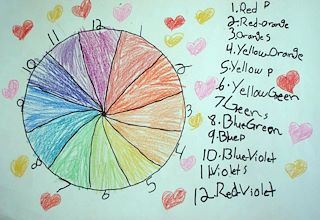 12
1
2
3
4
5
6
7
8
9
10
11
1. Red P
2. Red-orange
3. Oranges
4. Yellow Orange
5. Yellow P
6. Yellow Green
7. Green s
8. Blue Green
9. Blue P
10. Blue Violet
11 Violet s
12. Red-Violet